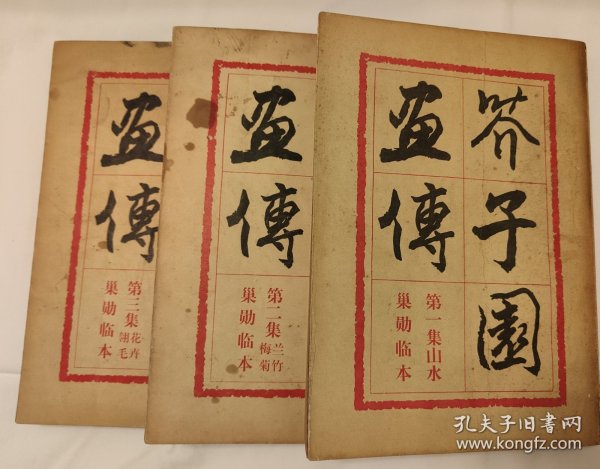 芥子園
画傳
第一集山水
巢勋临本
画傳
第二集兰竹
梅菊
巢勋临本
画傳
第三集花卉
翎毛
巢勋临本
孔夫子旧书网
www.kongfz.com